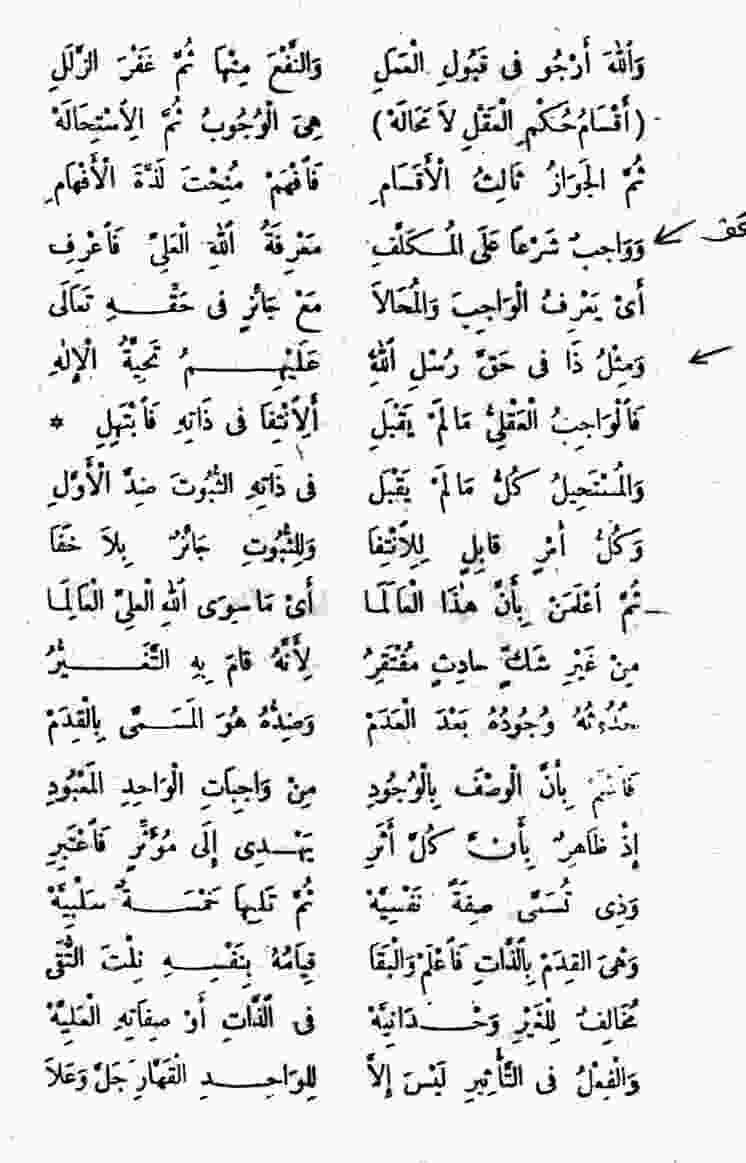 وَاللهَ أَرْجُو فِى قَبُولِ الْعَمَلِ وَالنَّفْعَ مِنْهَا ثُمَّ غَفْرَ الزَّلَلِ
(أَقْسَامُ حُكْمِ الْعَقْلِ لَا مَحَالَهْ) هِىَ الْوُجُوبُ ثُمَّ الِاسْتِحَالَهْ
ثُمَّ الجَوَازُ ثَالِثُ الْأَقْسَامِ فَافْهَمْ مُنِحْتَ لَذَّةَ الْأَفْهَامِ
وَوَاجِبٌ شَرْعاً عَلَى المُكَلَّفِ مَعْرِفَةُ اللهِ الْعَلِىِّ فَاعْرِفِ
أَىْ يَعْرِفُ الْوَاجِبَ وَالمُحَالَا مَعْ جَائِزٍ فِى حَقِّهِ تَعَالَى
وَمِثْلُ ذَا فِى حَقِّ رُسْلِ اللهِ عَلَيْهِمُ تَحِيَّةُ الْإِلٰهِ
فَالْوَاجِبُ الْعَقْلِىُّ مَا لَمْ يَقْبَلِ الِانْتِفَا فِى ذَاتِهِ فَابْتَهِلِ *
وَالمُسْتَحِيلُ كُلُّ مَا لَمْ يَقْبَلِ فِى ذَاتِهِ الثُّبُوتَ ضِدُّ الْأَوَّلِ
وَكُلُّ أَمْرٍ قَابِلٍ لِلِانْتِفَا وَلِلثُّبُوتِ جَائِزٌ بِلَا خَفَا
ثُمَّ اعْلَمَنْ بِأَنَّ هٰذَا الْعَالَمَا أَىْ مَا سِوَى اللهِ الْعَلِىِّ الْعَالِمَا
مِنْ غَيْرِ شَكٍّ حَادِثٌ مُفْتَقِرُ لِأَنَّهُ قَامَ بِهِ التَّغَيُّرُ
حُدُوثُهُ وُجُودُهُ بَعْدَ الْعَدَمْ وَضِدُّهُ هُوَ المُسَمَّى بِالْقِدَمْ
فَاعْلَمْ بِأَنَّ الْوَصْفَ بِالْوُجُودِ مِنْ وَاجِبَاتِ الْوَاحِدِ المَعْبُودِ
إِذْ ظَاهِرٌ بِأَنَّ كُلَّ أَثَرِ يَهْدِى إِلَى مُؤَثِّرٍ فَاعْتَبِرِ
وَذِى تُسَمَّى صِفَةً نَفْسِيَّهْ ثُمَّ تَلِيهَا خَمْسَةٌ سَلْبِيَّهْ
وَهْىَ القِدَمْ بِالذَّاتِ فَاعْلَمْ وَالْبَقَا قِيَامُهُ بِنَفْسِهِ نِلْتَ التُّقَى
مُخَالِفٌ لِلْغَيْرِ وَحْدَانِيَّهْ فِى الذَّاتِ أَوْ صِفَاتِهِ الْعَلِيَّهْ
وَالْفِعْلُ فِى التَّأْثِيرِ لَيْسَ إِلَّا لِلْوَاحِدِ الْقَهَّارِ جَلَّ وَعَلَا